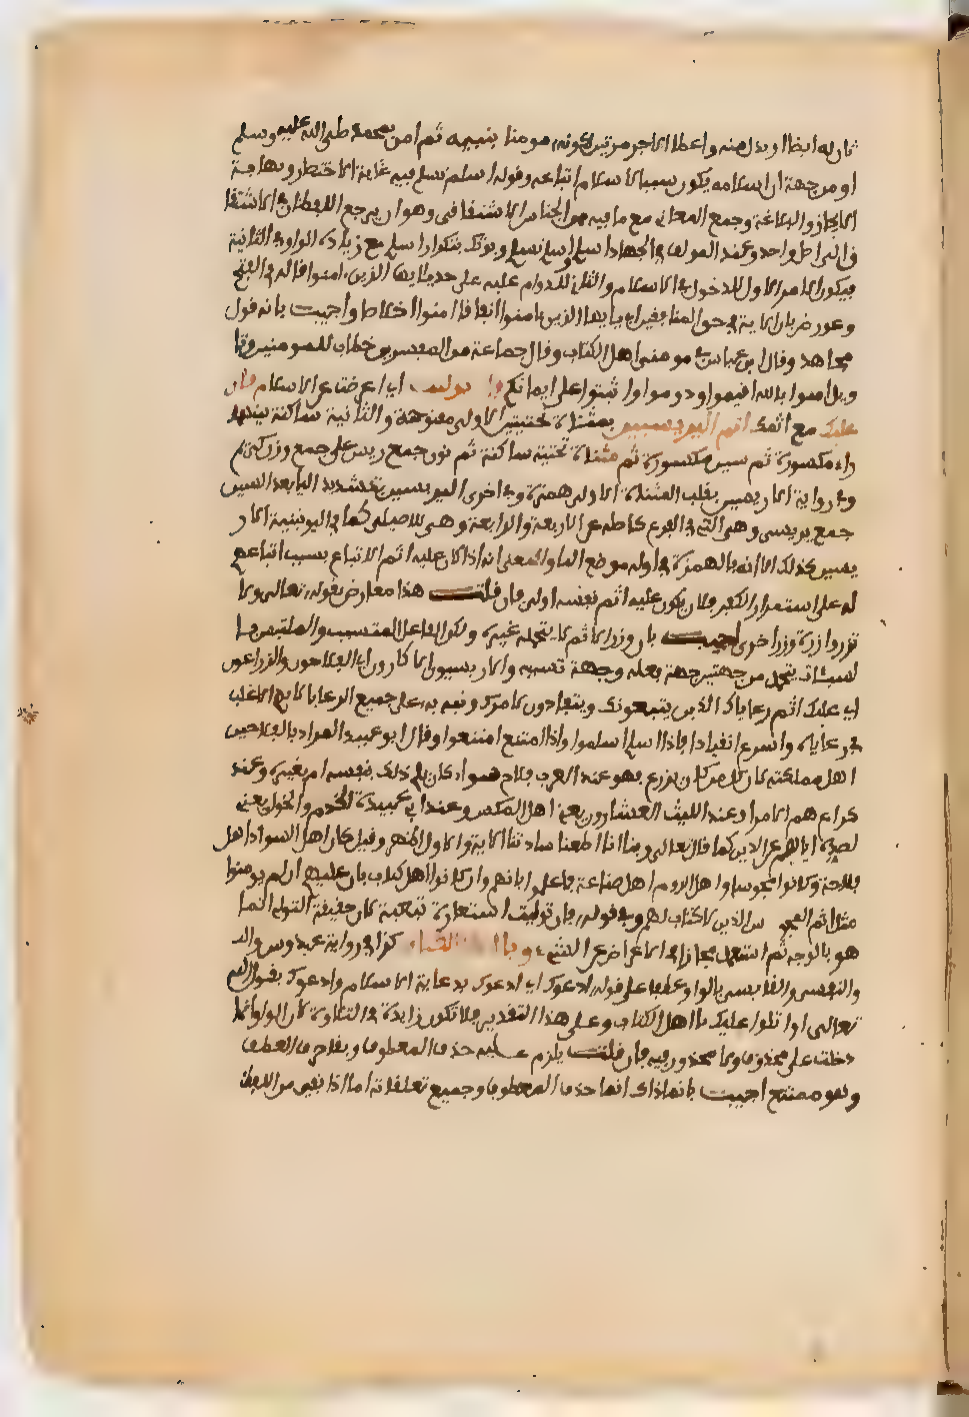 او من جهة ان اسلامه يكون سببا لاسلام اتباعه وقوله اسلم تسلم فيه غاية الاختصار ونهاية
الايجاز والبلاغة وجمع المعاني مع ما فيه من الجناس الاشتقاقي وهو ان يرجع اللفظان في الاشتقا
ق الى اصل واحد وعند المولف في الجهاد اسلم تسلم واسلم يوتك بتكرار اسلم مع زيادة الواو في الثانية
فيكون الامر الاول للدخول في الاسلام والثاني للدوام عليه على حد يا ايها الذين امنوا امنوا قاله في الفتح
وعورض بان الاية في حق المنافقين اي يا ايها الذين امنوا نفاقا امنوا اخلاصا واجيب بانه قول
مجاهد وقال ابن عباس في مومني اهل الكتاب وقال جماعة من المفسرين خطاب للمومنين
امنوا بالله اقيموا ودوموا واثبتوا على ايمانكم توليت اي اعرضت عن الاسلام فان
عليك مع اثمك اثم اليريسيين بمثناة تحتيتين الاولى مفتوحة والثانية ساكنة بينهما
راء مكسورة ثم سين مكسورة ثم مثناة تحتية ساكنة ثم نون جمع يريس على وزن كريم
وفي رواية الاريسين بقلب المثناة الاولى همزة وفي اخرى اليريسيين بتشديد الياء بعد السين
جمع يريسي وهي التي في الفرع كاصله عن الاربعة والرابعة وهي للاصيلي كما في اليونينية الار
يسيين كذلك الا انه بالهمزة في اوله موضع الياء والمعنى انه اذا كان عليه اثم الاتباع بسبب اتباعهم
له على استمرار الكفر فلان يكون عليه اثم نفسه اولى فان قلت هذا معارض بقوله تعالى ولا
تزر وازرة وزر اخرى اجيب بان وزر الاثم لا يتحمله غيره ولكن الفاعل المتسبب والملتبس با
لسيئات يتحمل من جهتين جهة فعله وجهة تسببه والاريسيون الاكارون اي الفلاحون والزراعون
اي عليك اثم رعاياك الذين يتبعونك وينقادون لامرك ونبه به على جميع الرعايا لانهم الاغلب
في رعاياه واسرع انقيادا فاذا اسلم اسلموا واذا امتنع امتنعوا وقال ابو عبيد المراد بالفلاحين
اهل مملكته لان كل من كان يزرع فهو عند العرب فلاح سواء كان يلي ذلك بنفسه ام بغيره وعند
كراع هم الامراء وعند الليث العشارون يعني اهل المكس وعند ابي عبيدة الخدم والخول يعني
لصده اياهم عن الدين كما قال تعالى ربنا انا اطعنا سادتنا الاية والاول اظهر وقيل كان اهل السواد اهل
فلاحة وكانوا مجوسا واهل الروم اهل صناعة فاعلموا بانهم وان كانوا اهل كتاب فان عليهم ان لم يومنوا
مثل اثم المجوس الذين لا كتاب لهم وفي قوله فان توليت استعارة تبعية لان حقيقة التولي انما
هو بالوجه ثم استعمل مجازا في الاعراض عن الشيء كذا في رواية عبدوس
والنسفي والقابسي بالواو عطفا على قوله ادعوك اي ادعوك بدعاية الاسلام وادعوك بقول الله
تعالى او اتلوا عليك يا اهل الكتاب وعلى هذا التقدير فلا تكون زايدة في التلاوة لان الواو انما
دخلت على محذوف ولا محذور فيه فان قلت يلزم عليه حذف المعطوف وبقاء حرف العطف
وهو ممتنع اجيب بان ذاك اذا حذف المعطوف وجميع تعلقاته اما اذا بقي من اللفظ